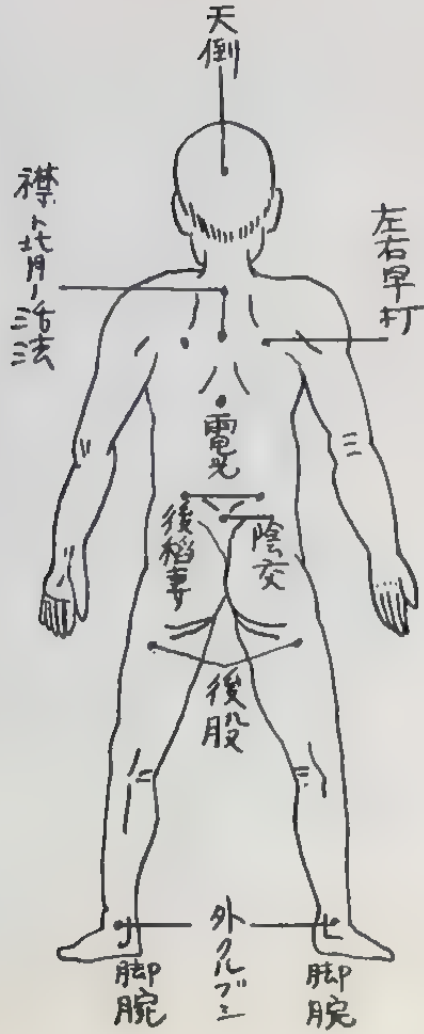 天倒
襟ト背ノ活法
左右早打
電光
後稲妻
陰交
後股
外クルブシ
脚腕
脚腕